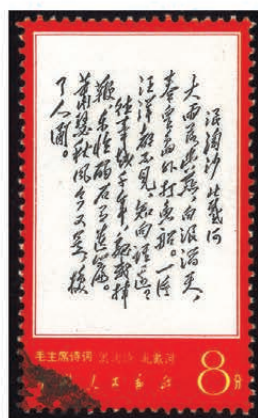 浪淘沙 北戴河
大雨落幽燕,白浪滔天,
秦皇岛外打鱼船。一片
汪洋都不见,知向谁边?
往事越千年,魏武挥
鞭,东临碣石有遗篇。
萧瑟秋风今又是,换
了人间。
毛主席诗词 浪淘沙 北戴河
人民邮政
8分